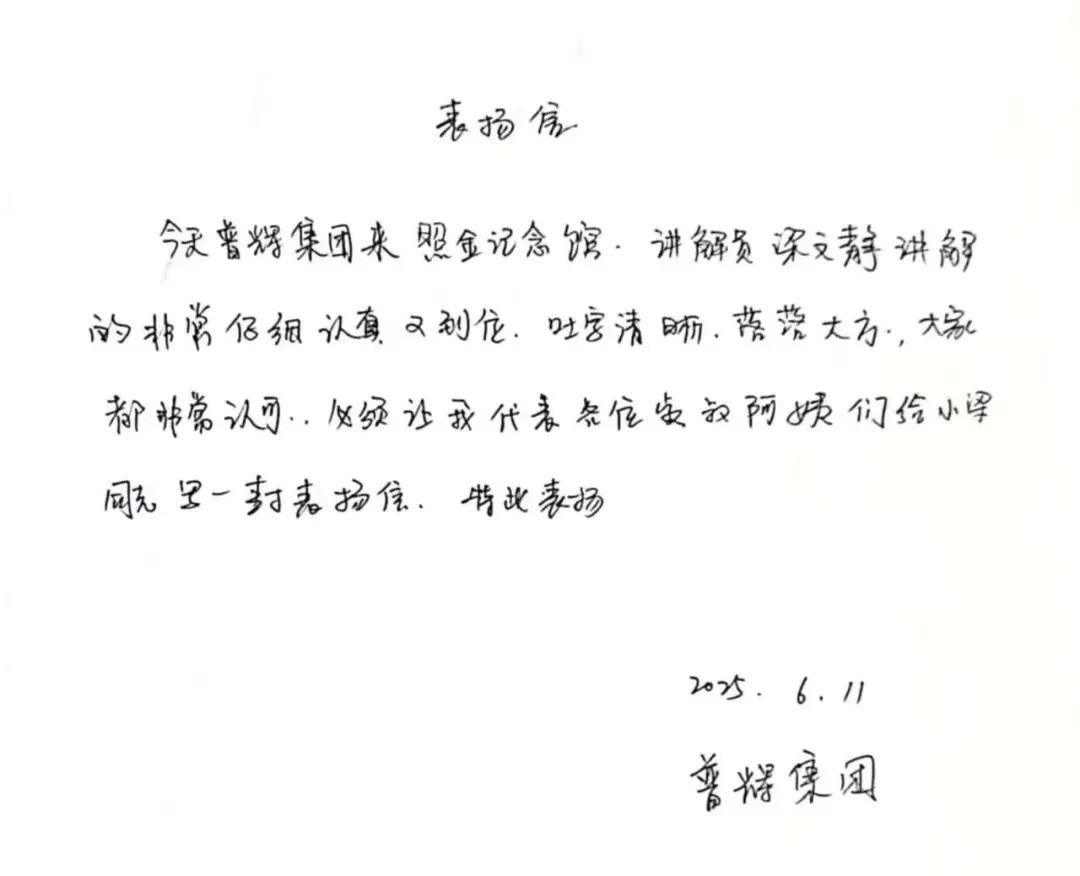 表扬信
今天普辉集团来照金记念馆.讲解员梁文静讲解
的非常仔细认真又到位.吐字清晰.落落大方.,大家
都非常认可..必须让我代表各位叔阿姨们给小梁
同志写一封表扬信.特此表扬
2025.6.11
普辉集团